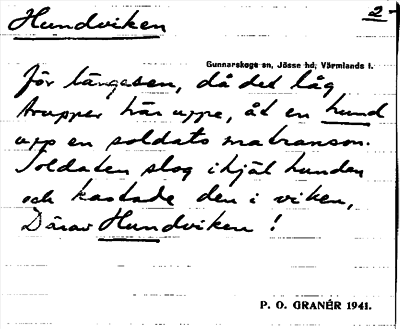 Hundviken
2
Gunnarskogs sn, Jösse hd, Värmlands l.
För längesen, då det låg
trupper här uppe, åt en hund
upp en soldats matranson.
Soldaten slog ihjäl hunden
och kastade den i viken,
Därav Hundviken!
P. O. GRANÉR 1941.